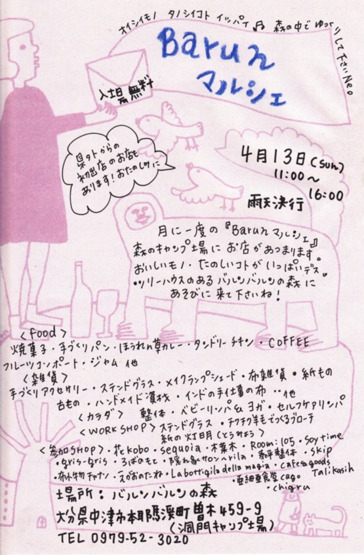 オイシイモノ タノシイコト イッパイ♫ 森の中で ゆっくりして下さいNeo
Barun
マルシェ
入場無料
県外からの
初出店のお店も
あります!おたのしみに
4月13日(sun)
11:00〜
16:00
雨天決行
月に一度の『Barunマルシェ』
森のキャンプ場に お店があつまります。
おいしいモノ・たのしいコトがいっぱいデス。
・ツリーハウスのあるバルンバルンの森に
あそびに来て下さいね!
<food>
焼菓子・手づくりパン・ほうれん草カレー・タンドリーチキン・COFFEE
フルーツコンポート・ジャム 他
<雑貨>
手づくりアクセサリー・ステンドグラス・メイクランプシェード・布雑貨・紙もの
古もの・ハンドメイド 他
インドの手仕事の布・・他
<カラダ> 整体・ベビーリンパ&ヨガ・セルフケアリンパ
<WORK SHOP> ステンドグラス・チクチク羊毛でつくるブローチ
<参加SHOP>・花kobo・sequoia・Room:105・Soy time
・ろばのもも・skip
・えがおだね・La bottiglia della magia・cafe&goods
Talikasih
・chigru
場所:バルンバルンの森
大分県中津市本耶馬渓町曽木459-9
(洞門キャンプ場)
TEL 0979-52-3020